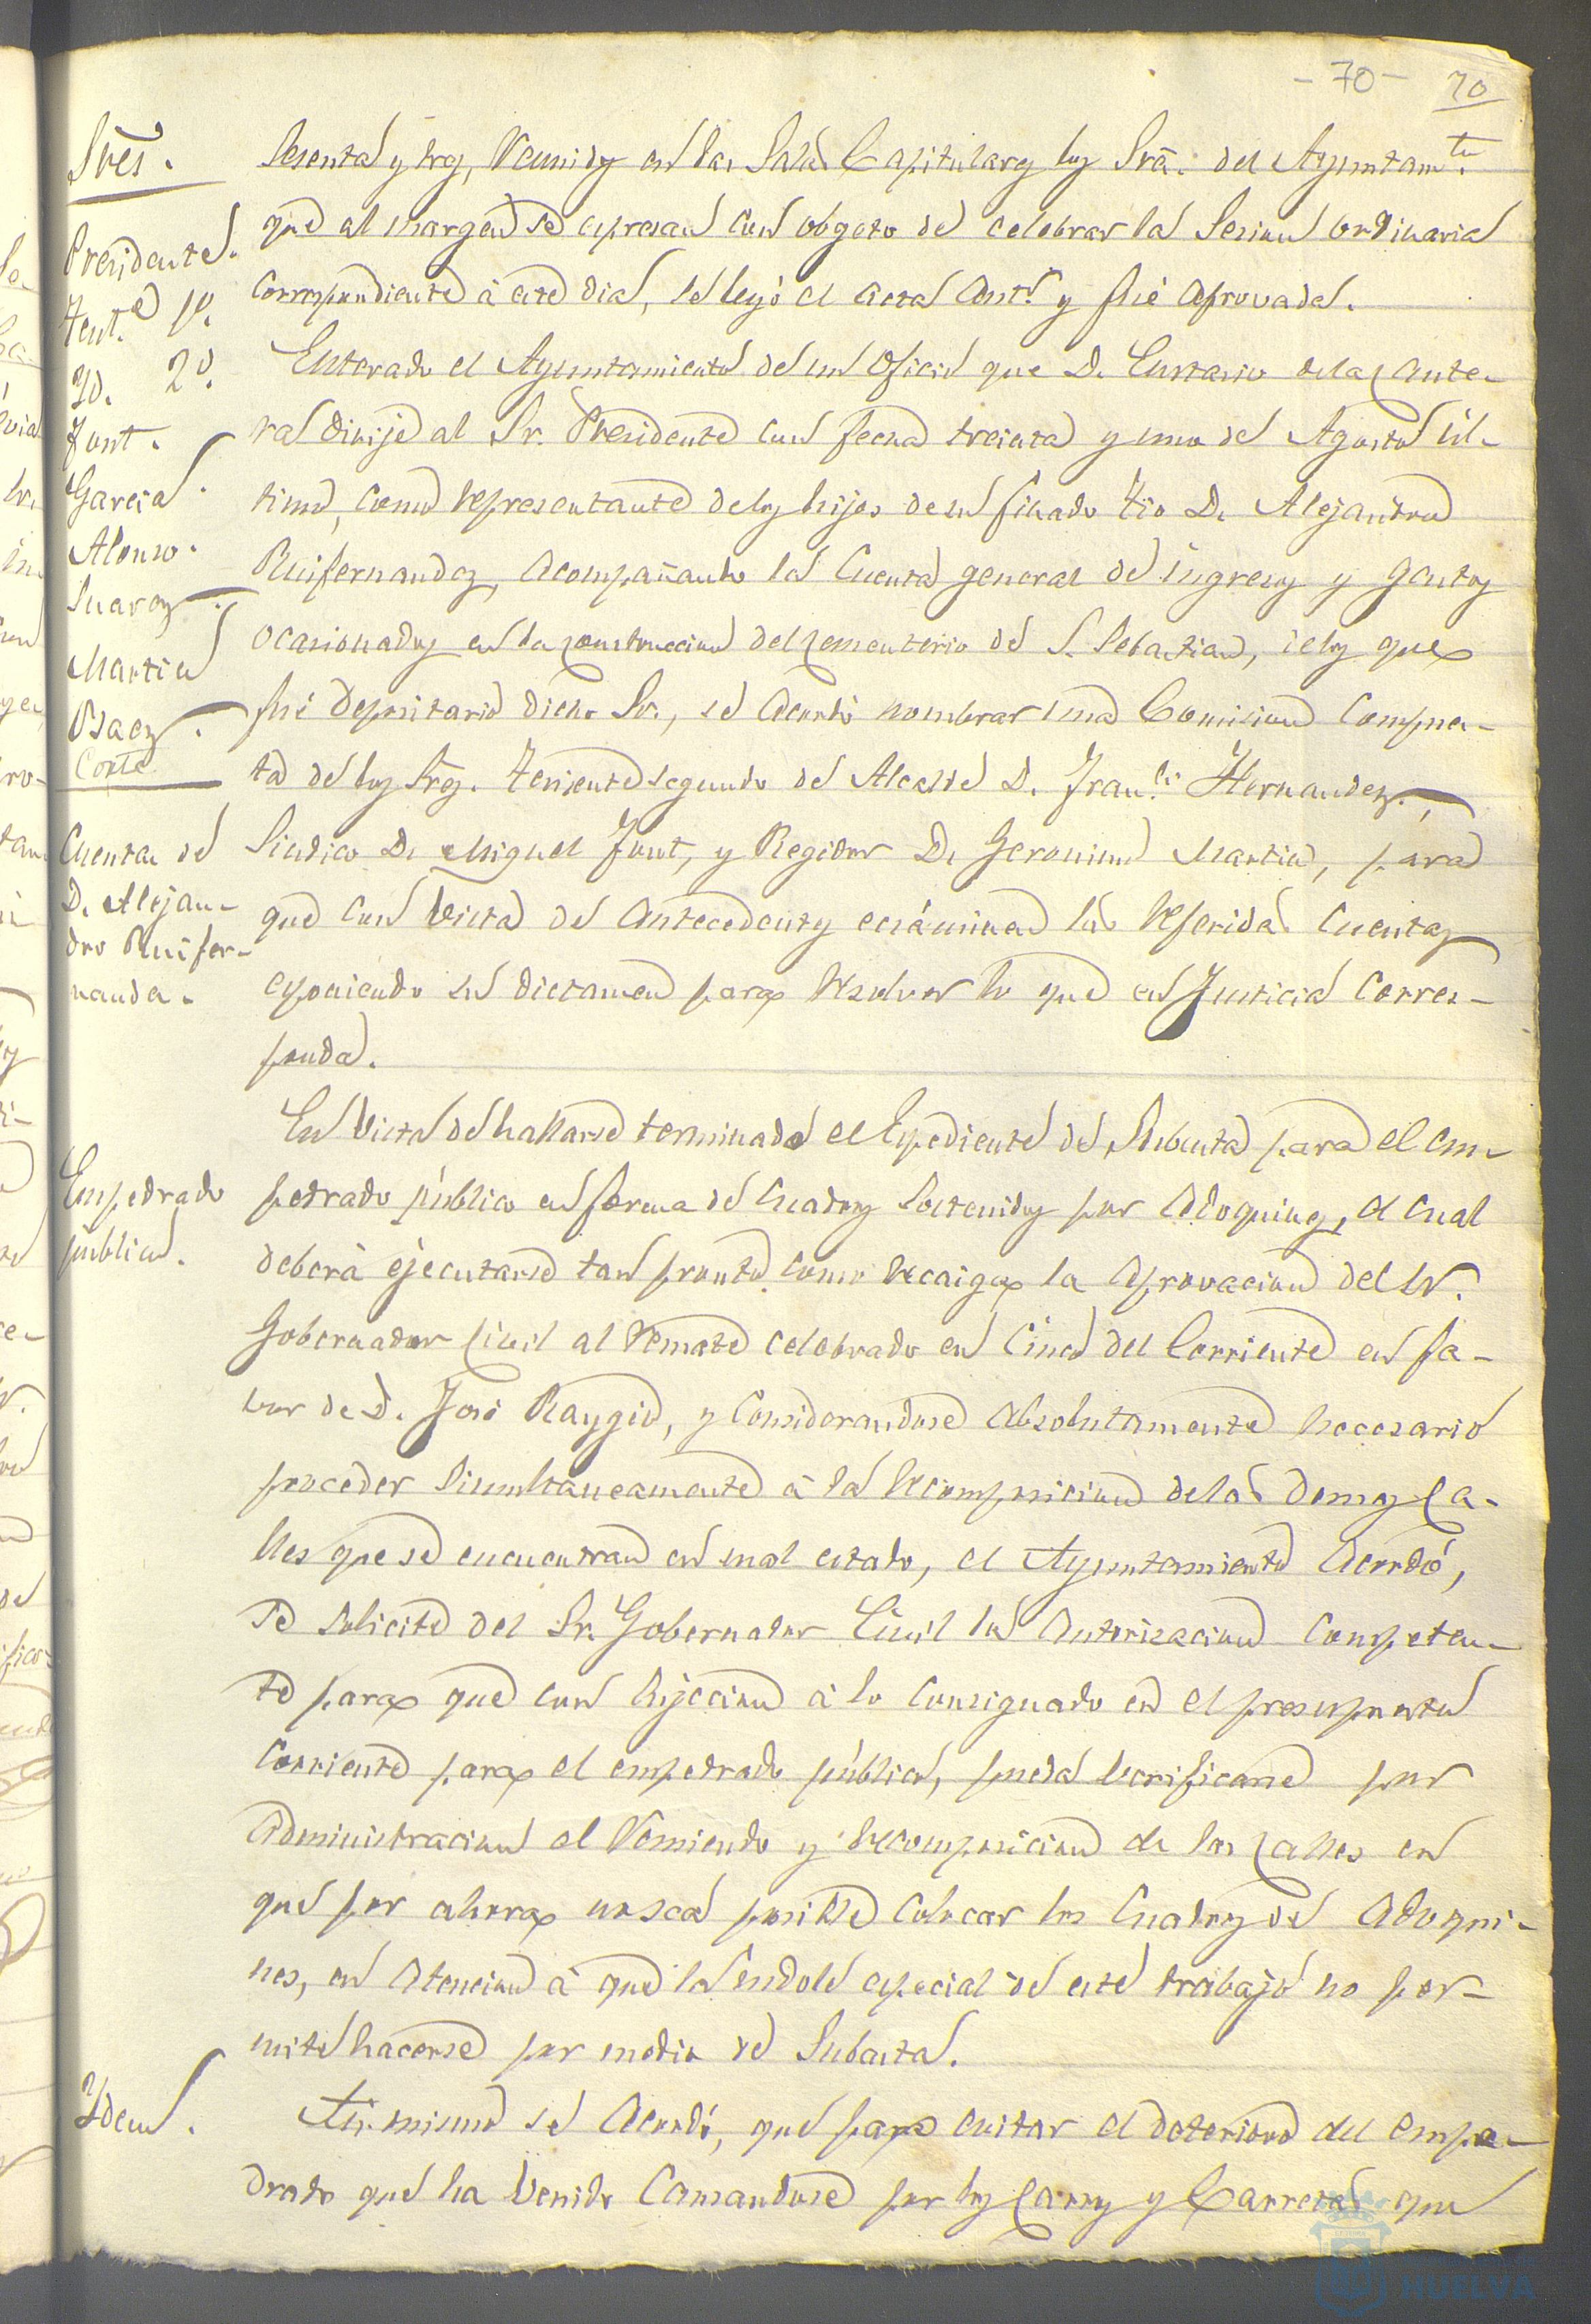 - 70 -
70
Sres.
Presidente.
Tent.e 1º.
Yd. 2º.
Font.
Garcia.
Alonso.
Suarez.
Martin
Baez.
Corte
sesenta y tres, Reunidos en las Salas Capitulares los Sres. del Ayuntamto.
que al margen se espresan con obgeto de celebrar la Sesion ordinaria
Correspondiente á este dia, se leyó el acta antr. y fué aprovada.
Enterado el Ayuntamiento de un oficio que D. Eustasio de la Cante-
ra dirije al Sr. Presidente con fecha treinta y uno de Agosto úl-
timo, como representante de los hijos de su finado tio D. Alejandro
Ruifernandez, acompañando la Cuenta general de ingresos y gastos
ocasionados en la construccion del Cementerio de S. Sebastian, de los que
fué Depositario dicho Sr., se acordó nombrar una Comision compues-
ta de los Sres. Teniente segundo de Alcalde D. Franco. Hernandez,
Cuentas de
D. Alejan-
dro Ruifer-
nandez.
Sindico D. Miguel Font, y Regidor D. Geronimo Martin, para
que con vista de antecedentes ecsáminen las referidas Cuentas
esponiendo su dictamen para resolver lo que en Justicia Corres-
ponda.
Empedrado
público.
En vista de hallarse terminado el Espediente de Subasta para el em-
pedrado público en forma de Cuadros sostenidos por adoquines, el cual
deberá ejecutarse tan pronto como recaiga la aprovacion del Sr.
Gobernador Civil al remate celebrado en Cinco del Corriente en fa-
vor de D. José Raygio, y considerandose absolutamente necesario
proceder simultaneamente á la recomposicion de las demas Ca-
lles que se encuentran en mal estado, el Ayuntamiento acordó,
se solicite del Sr. Gobernador Civil la autorizacion competen-
te para que con sujecion á lo consignado en el presupuesto
Corriente para el empedrado público, pueda verificarse por
administracion el remiendo y recomposicion de las Calles en
que por ahora no sea posible colocar los Cuadros de adoqui-
nes, en atencion á que la índole especial de este trabajo no per-
mite hacerse por medio de Subasta.
Ydem.
Asi mismo se acordó, que para evitar el deterioro del empe-
drado que ha venido Causandose por los Carros y Carretas que
HUELVA